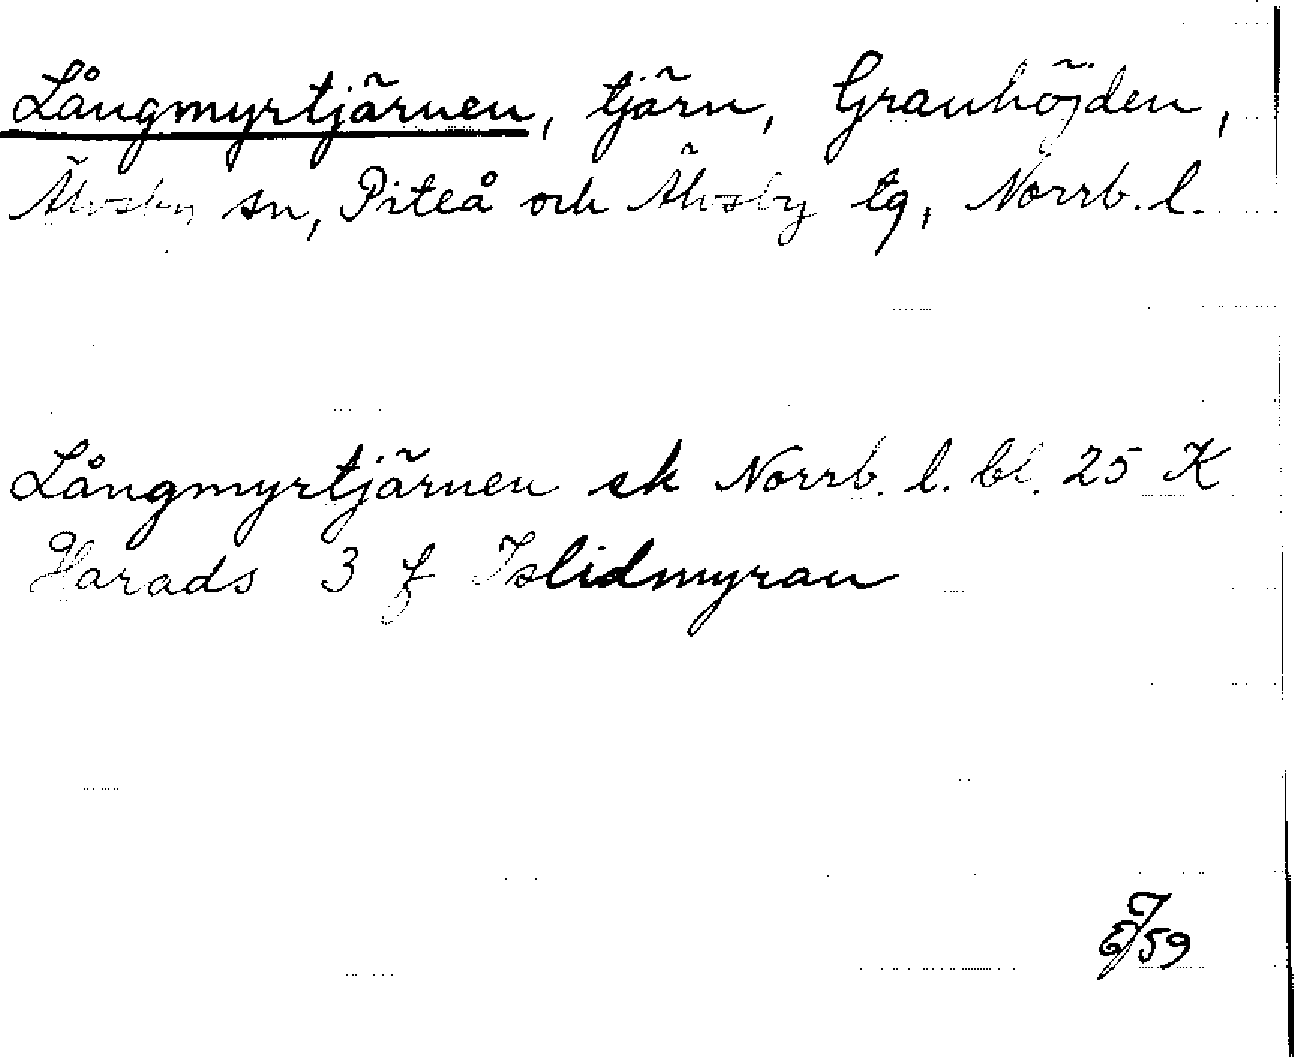 Långmyrtjärnen, tjärn, Granhöjden,
Älvsby sn, Piteå och Älvsby tg, Norrb. l.
Långmyrtjärnen ek Norrb. l. bl. 25 K
Harads 3 f Islidmyran
59